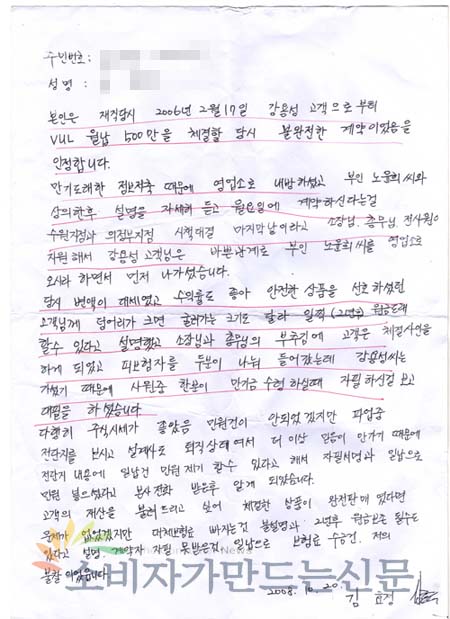 주민번호:
성명 :
본인은 재직당시 2006년 2월17일 강용성 고객으로 부터
VUL 월납 500만을 체결할 당시 불완전한 계약이었음을
인정합니다.
만기도래한 정보저축 때문에 영업소로 내방하셨고 부인 노윤희씨와
상의한후 설명을 자세히 듣고 월요일에 계약하신다는걸
수원지점과 의정부지점 시책대결 마지막날이라고 소장님, 총무님, 전사원이
자원해서 강용성 고객님은 바쁜관계로 부인 노윤희씨를 영업소로
오시라 하면서 먼저 나가셨습니다.
당시 변액이 대세였고 수익률도 좋아 안전한 상품을 선호하셨던
고객님께 덩어리가 크면 굴러가는 크기도 달라 일찍 (2년후) 원금도래
할수 있다고 설명했고 소장님과 총무님의 부추김에 고객은 체결사인을
하게 되었고 피보험자를 두분이 나눠 들어갔는데 강용성씨는
가셨기 때문에 사원중 한분이 만기금 수령하실때 자필하신걸 보고
대필을 하셨습니다
다행히 주식시세가 좋았음 민원건이 안되었겠지만 파업중
전단지를 보시고 설계사도 퇴직상태여서 더 이상 믿음이 안가기 때문에
전단지 내용에 일납건 민원제기 할수 있다고 해서 자필서명과 일납으로
민원 넣으셨다고 본사전화 받은후 알게 되었습니다.
고객의 재산을 불려드리고 싶어 체결한 상품이 완전판매 였다면
문제가 없었겠지만 대체보험료 빠지는것 불설명과 2년후 원금보존 될수도
있다고 설명, 계약자 자필 못받은건, 일납으로 보험료 수금건, 저의
불찰이었습니다.
2008. 10. 20. 김 효정
News
소비자가만드는신문